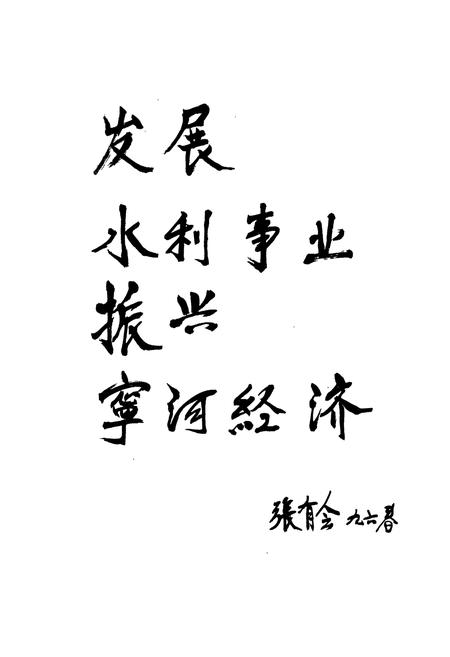 发展
水利事业
振兴
寧河経济
張有会 九六春